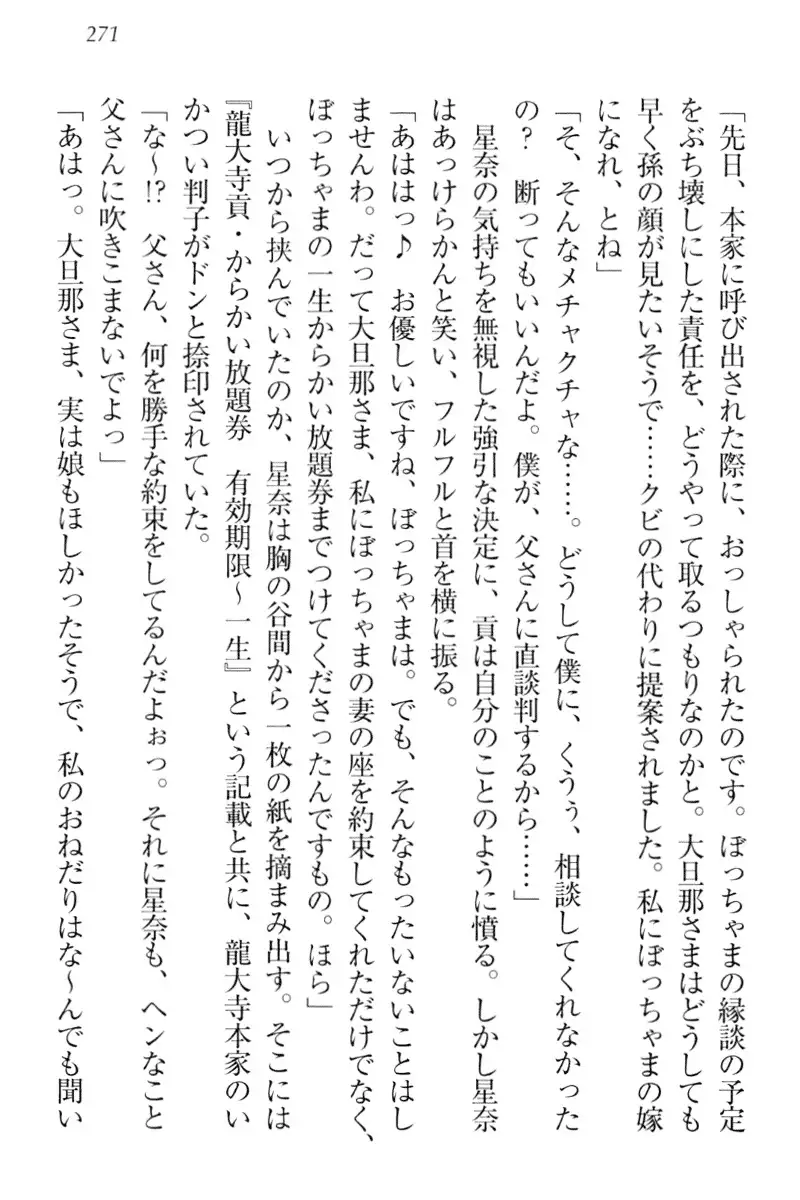 271
「先日、本家に呼び出された際に、おっしゃられたのです。ぼっちゃまの縁談の予定
をぶち壊しにした責任を、どうやって取るつもりなのかと。大旦那さまはどうしても
早く孫の顔が見たいそうで……クビの代わりに提案されました。私にぼっちゃまの嫁
になれ、とね」
「そ、そんなメチャクチャな……。どうして僕に、くうぅ、相談してくれなかった
の？　断ってもいいんだよ。僕が、父さんに直談判するから……」
　星奈の気持ちを無視した強引な決定に、貢は自分のことのように憤る。しかし星奈
はあっけらかんと笑い、フルフルと首を横に振る。
「あははっ♪　お優しいですね、ぼっちゃまは。でも、そんなもったいないことはし
ませんわ。だって大旦那さま、私にぼっちゃまの妻の座を約束してくれただけでなく、
ぼっちゃまの一生からかい放題券までつけてくださったんですもの。ほら」
　いつから挟んでいたのか、星奈は胸の谷間から一枚の紙を摘まみ出す。そこには
『龍大寺貢・からかい放題券　有効期限～一生』という記載と共に、龍大寺本家のい
かつい判子がドンと捺印されていた。
「な～!?　父さん、何を勝手な約束をしてるんだよぉっ。それに星奈も、ヘンなこと
父さんに吹きこまないでよっ」
「あはっ。大旦那さま、実は娘もほしかったそうで、私のおねだりはな～んでも聞い